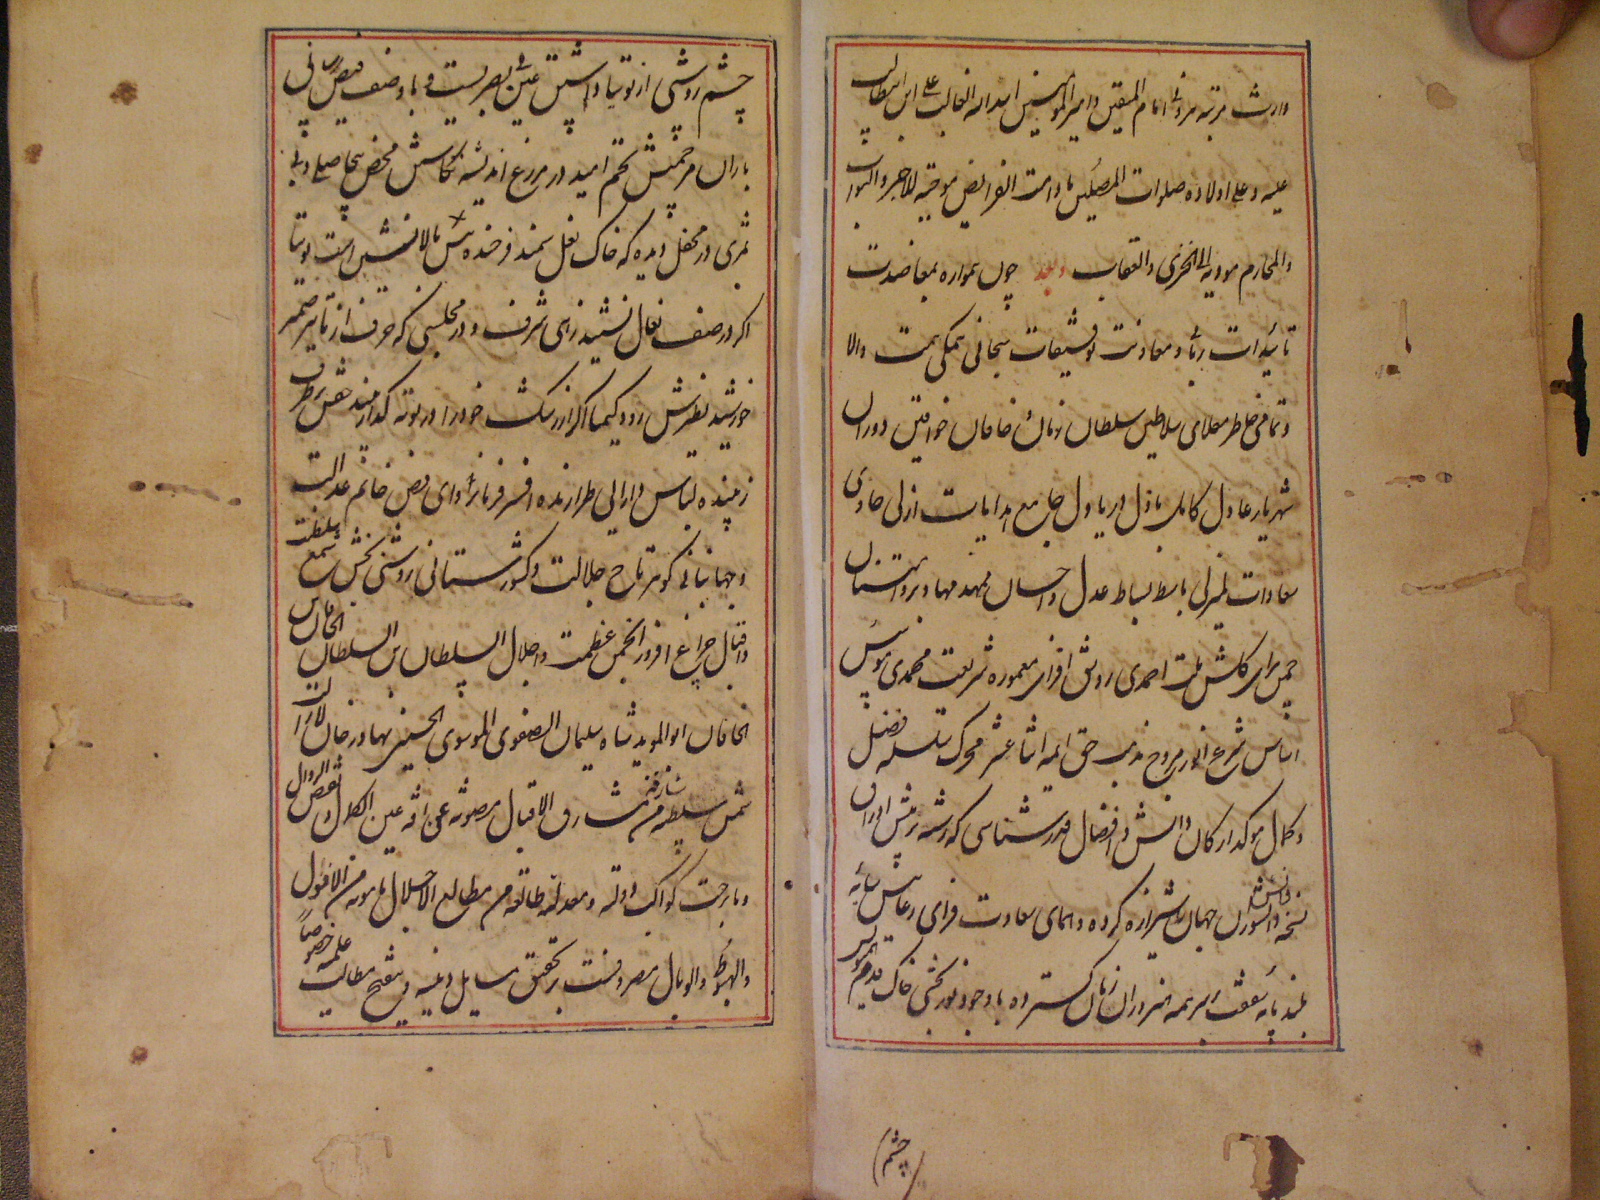 وارث مرتبه هرونی امام المتقین و امیر المؤمنین اسد الله الغالب علی ابن ابیطالب
علیه و علی اولاده صلوات المصلین مادامت الفرایض موجبه للاجر و الثواب
والمحارم مودیه الی الخزی والعقاب وبعد چون همواره بمعاضدت
تائیدات ربانی و معاونت توفیقات سبحانی همگی همت والا
و تمامی خاطر معلای سلاطین سلطان زمان خاقان خواقین دوران
شهریار عادل کامل باذل دریا دل جامع هدایات ازلی حاوی
سعادات لم یزلی باسط بساط عدل و احسان ممهد مهاد بر و امتنان
چمن پیرای گلشن ملت احمدی رونق افزای معموره شریعت محمدی مؤسس
اساس شرع انور مروج مذهب حق ائمه اثنا عشر محرک سلسله فضل
و کمال موکد ارکان دانش و افضال قدرشناسی که رشته اوراق
نسخه دانشوران جهان را شیرازه کرده و همای سعادت فرای سایه
بلند پایه شفقت بر سر همه هنروران زمان گسترده با وجود نور بخشی خاک قدم
چشم
چشم روشنی از توتیا داشتن عین بی بصریست و با وصف فیض رسانی
باران مرحمتش تخم امید در مزرع اندیشه کاشتن محض بیحاصلی و بی
ثمری در محفل دیده که خاک نعل سمند فرخنده پیش بالانشین است توتیا
اگر در صف نعال نشیند زهی شرف و در مجلسی که حرف از تاثیر ضمیر
خورشید نظرش رود کیمیا اگر از رشک خود را در بوته گدازد
زیبنده لباس دارائی طرازنده افسر فرمانروائی فص خاتم عدالت
و جهانبانی گوهر تاج جلالت و کشورستانی روشنی بخش شمع سلطنت
و اقبال چراغ افروز انجمن عظمت و اجلال السلطان بن السلطان الخاقان بن
الخاقان ابو الموید شاه سلیمان الصفوی الموسوی الحسینی بهادر خان لا زالت
شمس سلطنته من مشارق الاقبال مصونه عن آفه عین الکمال و نقص الزوال
و ما برحت کواکب دولته و معدلته طالعه من مطالع الاجلال مامونه من الافول
والهبوط والوبال مصروفست بر تحقیق مسایل دینیه و تنقیح مطالب علمیه خصوصا